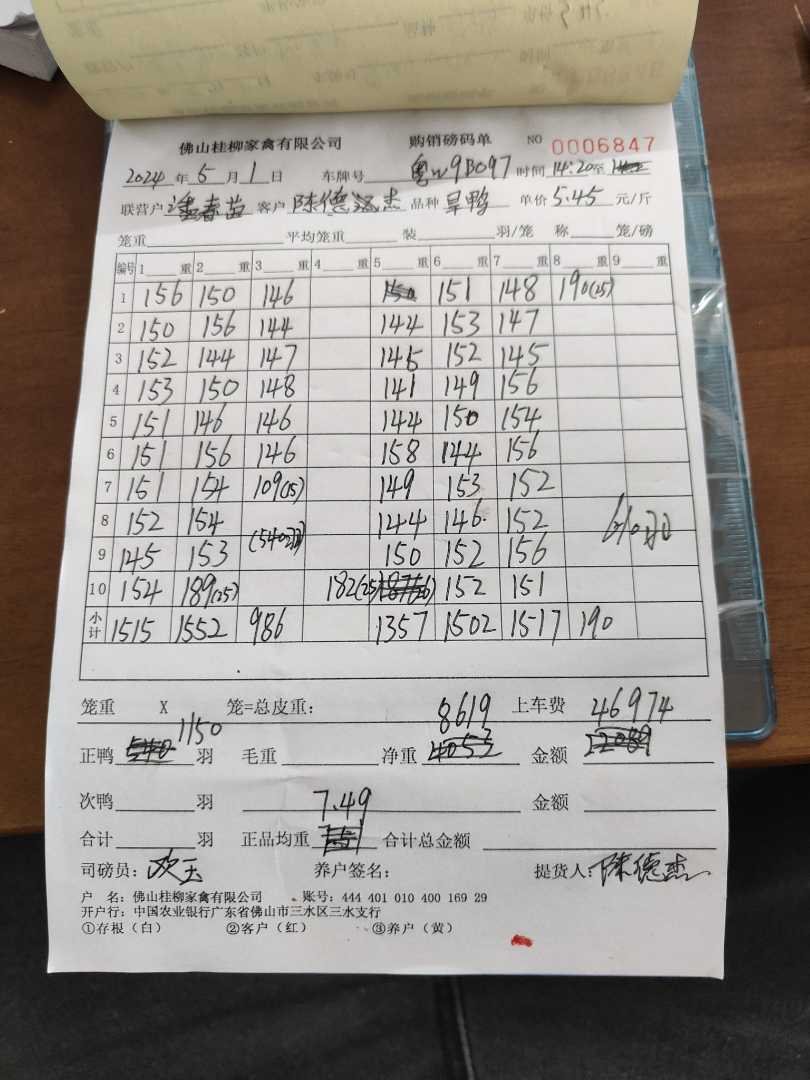 佛山桂柳家禽有限公司 购销磅码单 NO 0006847
2024年5月1日 车牌号 粤W9B097 时间14:20至
联营户 潘春苗 客户 陈德 杰 品种 旱鸭 单价5.45元/斤
笼重 平均笼重 装 羽/笼 称 笼/磅
编号 1 重 2 重 3 重 4 重 5 重 6 重 7 重 8 重 9 重
1 156 150 146 150 151 148 190(25)
2 150 156 144 144 153 147
3 152 144 147 145 152 145
4 153 150 148 141 149 156
5 151 146 146 144 150 154
6 151 156 146 158 144 156
7 151 154 109(15) 149 153 152
8 152 154 144 146 152 610羽
(540羽)
9 145 153 150 152 156
10 154 189(25) 182(25) 152 151
小计 1515 1552 986 1357 1502 1517 190
笼重 X 笼=总皮重: 8619 上车费 46974
1150
正鸭 540 羽 毛重 净重 4053 金额 22089
次鸭 羽 7.49 金额
合计 羽 正品均重 合计总金额
司磅员: 欢玉 养户签名: 提货人: 陈德杰
户 名: 佛山桂柳家禽有限公司 账号: 444 401 010 400 169 29
开户行: 中国农业银行广东省佛山市三水区三水支行
①存根(白) ②客户(红) ③养户(黄)